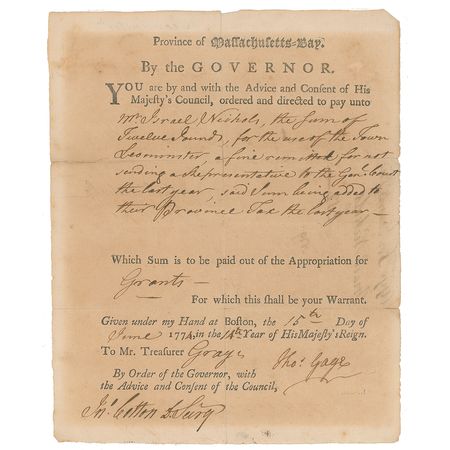 Province of Massachusetts-Bay.
By the GOVERNOR.
YOU are by and with the Advice and Consent of His
Majesty's Council, ordered and directed to pay unto
Mr. Israel Nichols, the Sum of
Twelve Pounds, for the use of the Town
Leominster, a fine remitted for not
sending a Representative to the Genl. Court
the last year, said Sum being added to
their Province Tax the last year —
Which Sum is to be paid out of the Appropriation for
Grants —
For which this shall be your Warrant.
Given under my Hand at Boston, the 15th Day of
June 1774, in the 14th Year of His Majesty's Reign.
To Mr. Treasurer Gray,
Tho. Gage
By Order of the Governor, with
the Advice and Consent of the Council,
Jn. Cotton D. Secry